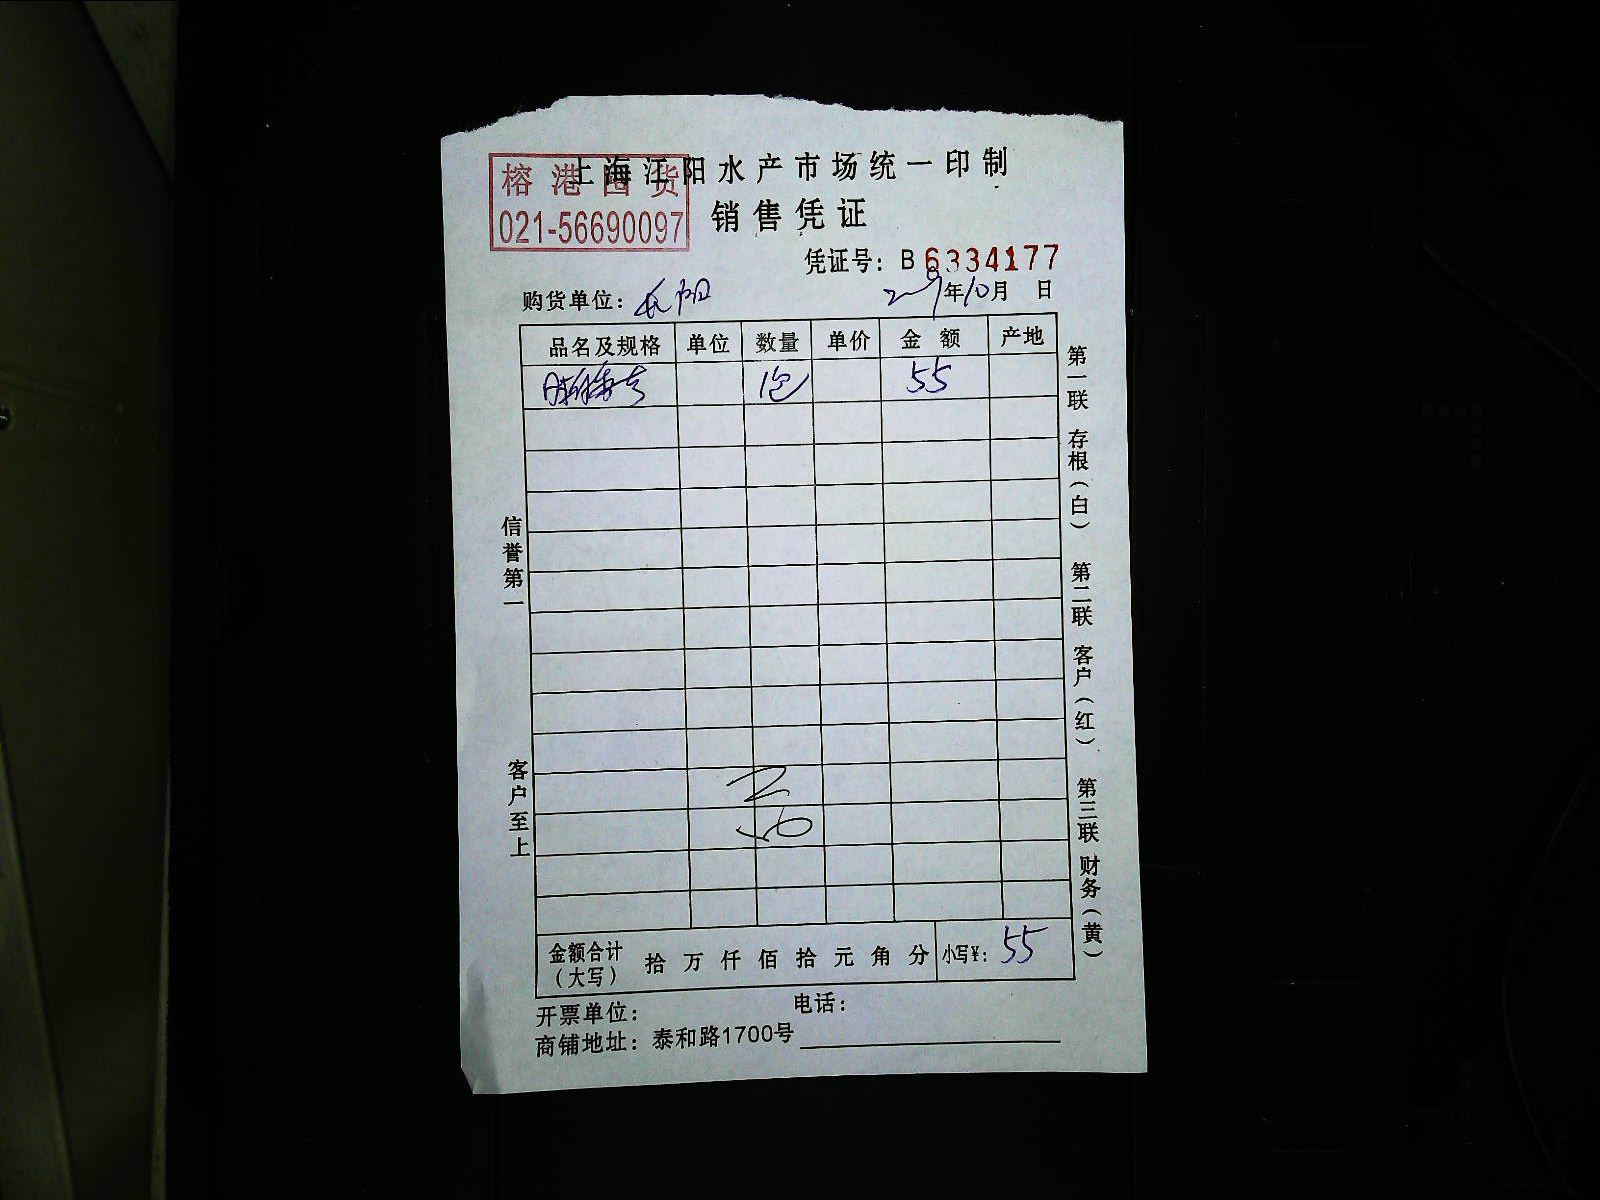 上海江阳水产市场统一印制
榕港围货
021-56690097
销售凭证
凭证号：B 6334177
购货单位：长阳
年10月 日
品名及规格 单位 数量 单价 金额 产地
1包 55
信誉第一
客户至上
第一联 存根（白） 第二联 客户（红） 第三联 财务（黄）
金额合计（大写） 拾 万 仟 佰 拾 元 角 分 小写¥：55
开票单位： 电话：
商铺地址：泰和路1700号